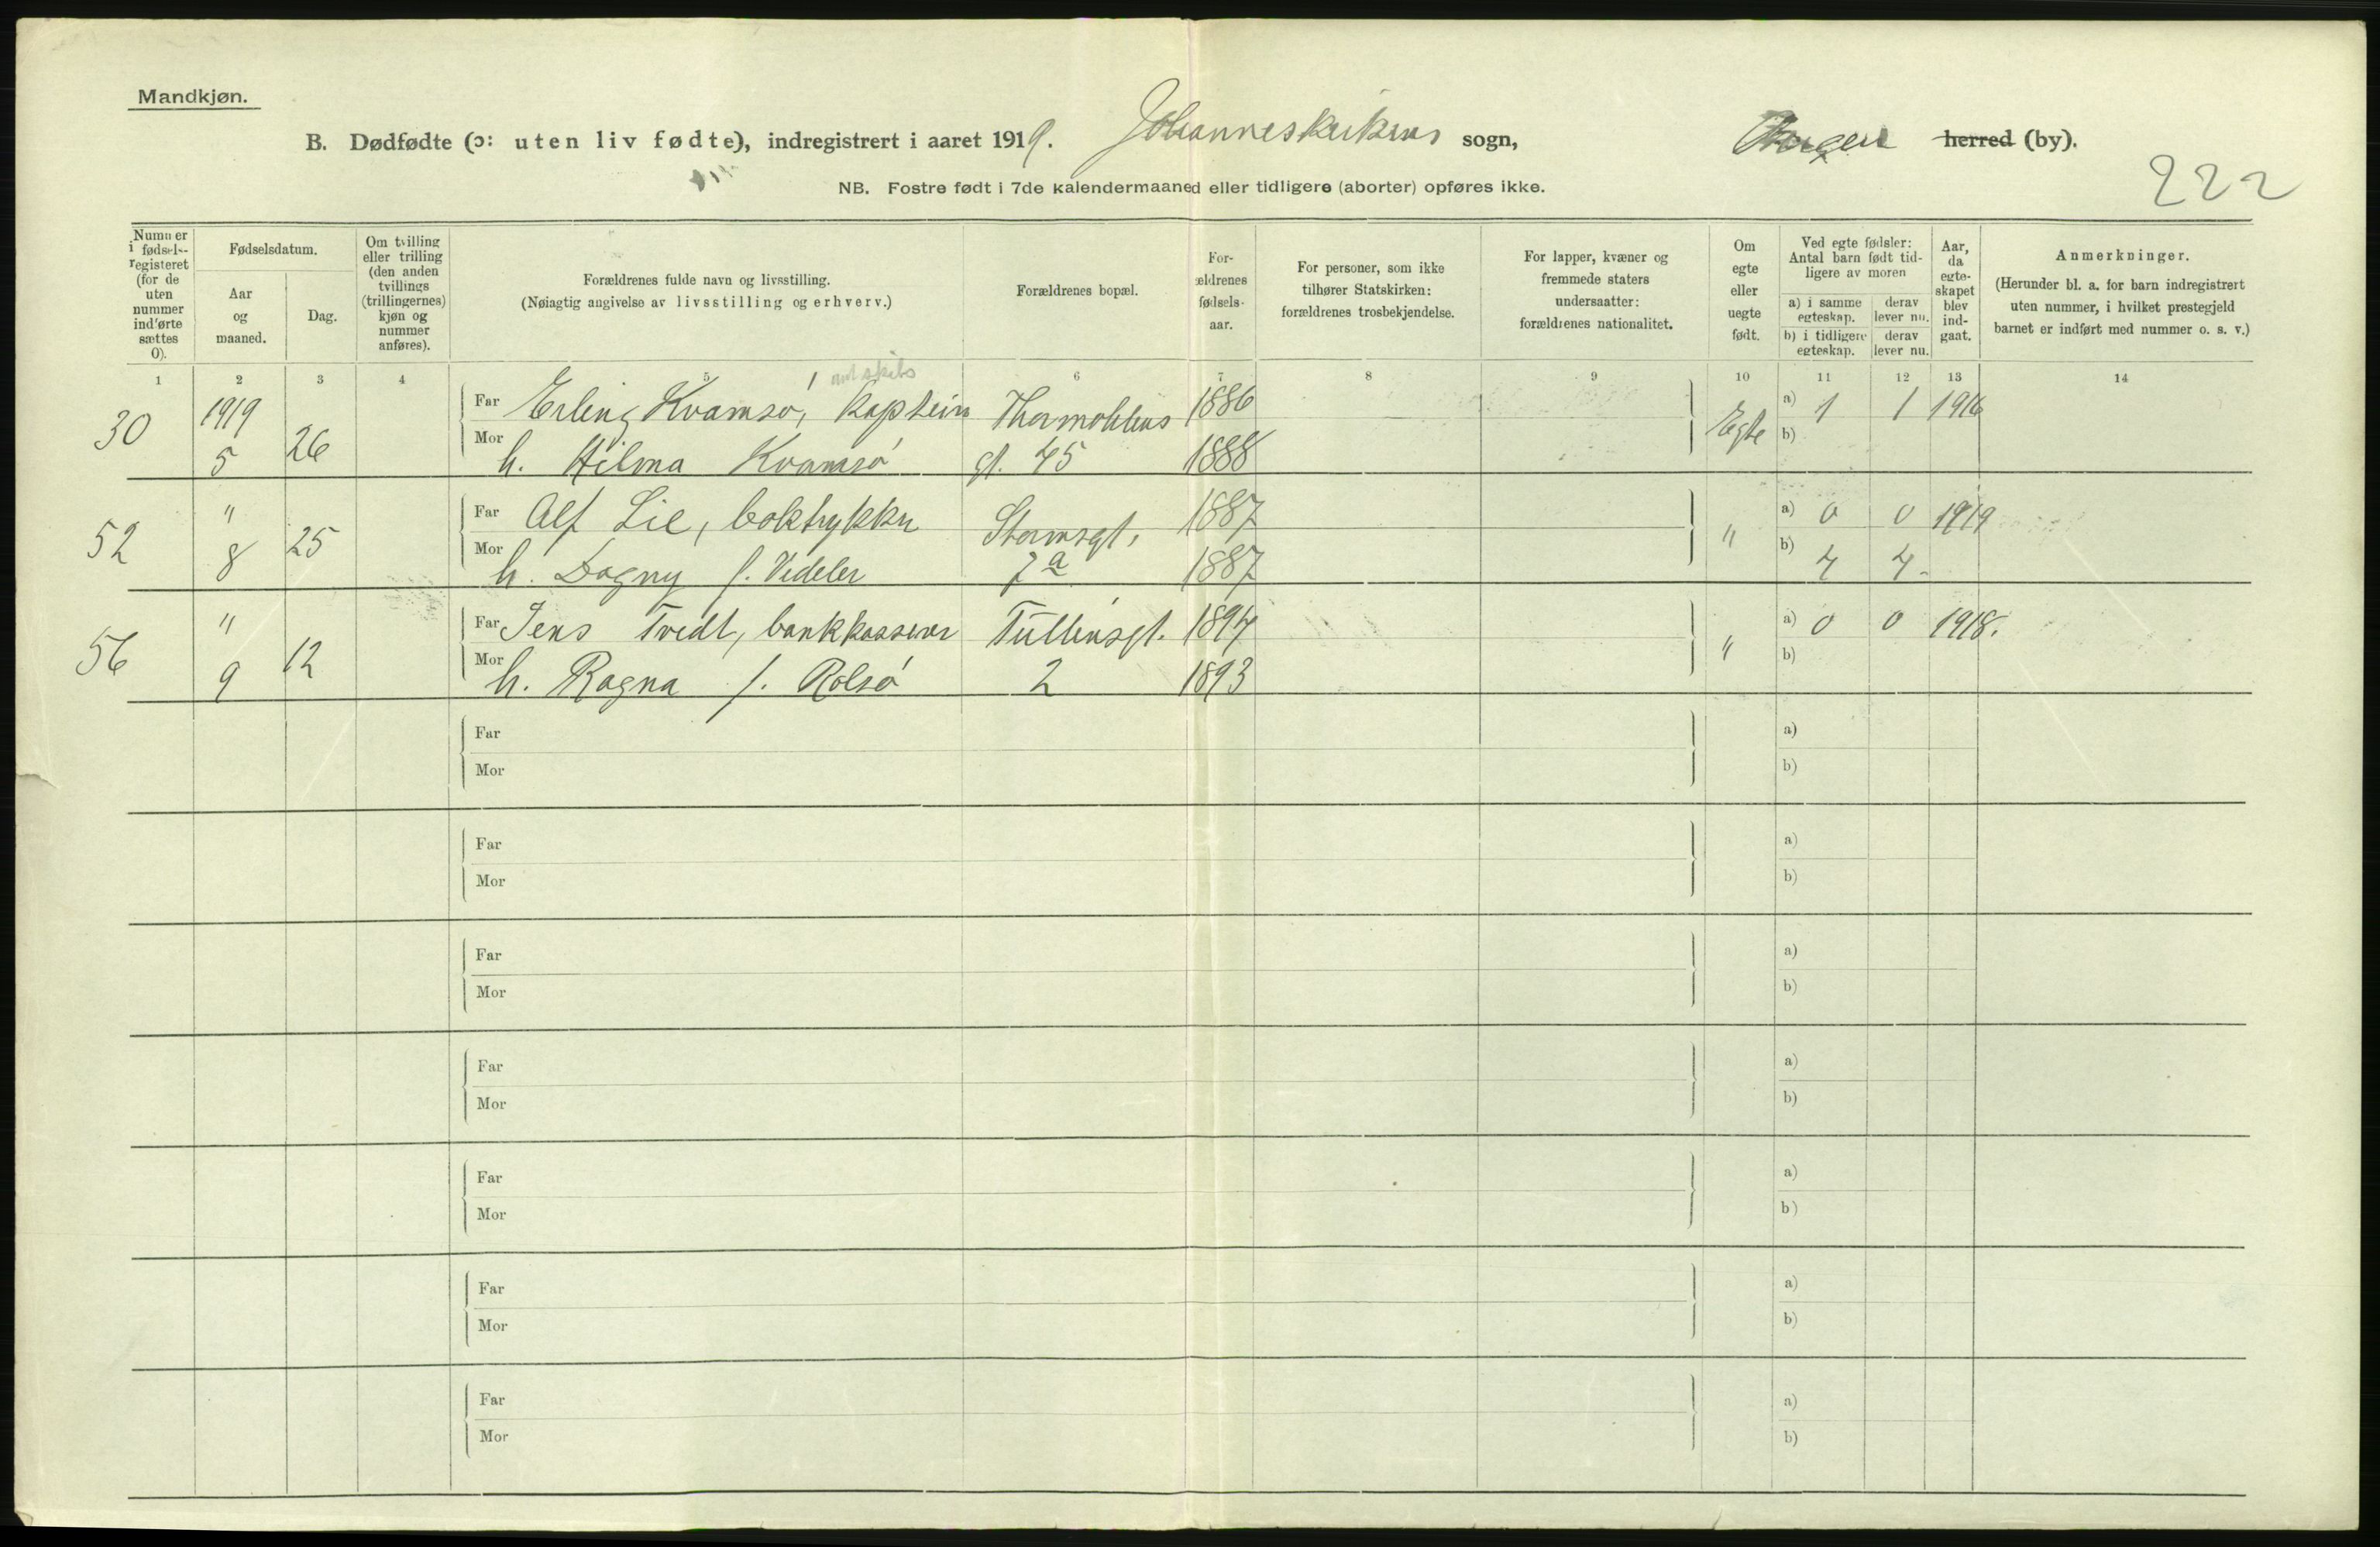 Mandkjøn.
B. Dødfødte (ɔ: uten liv fødte), indregistrert i aaret 1919. Johanneskirkens sogn, Bergen herred (by).
222
NB. Fostre født i 7de kalendermaaned eller tidligere (aborter) opføres ikke.
Nummer i fødsels-registeret (for de uten nummer indførte sættes 0).
Fødselsdatum.
Aar og maaned.
Dag.
Om tvilling eller trilling (den anden tvillings (trillingernes) kjøn og nummer anføres).
Forældrenes fulde navn og livsstilling.
(Nøiagtig angivelse av livsstilling og erhverv.)
Forældrenes bopæl.
For-ældrenes fødsels-aar.
For personer, som ikke tilhører Statskirken: forældrenes trosbekjendelse.
For lapper, kvæner og fremmede staters undersaatter: forældrenes nationalitet.
Om egte eller uegte født.
Ved egte fødsler: Antal barn født tid-ligere av moren
a) i samme egteskap.
derav lever nu.
b) i tidligere egteskap.
derav lever nu.
Aar, da egte-skapet blev ind-gaat.
Anmerkninger.
(Herunder bl. a. for barn indregistrert uten nummer, i hvilket prestegjeld barnet er indført med nummer o. s. v.)
1 2 3 4 5 6 7 8 9 10 11 12 13 14
30 1919 5 26 Far Erling Kvamsø, kaptein Thormøhlens 1886 Egte a) 1 1 1916
Mor h. Hilma Kvamsø gt. 45 1888 b)
52 " 8 25 Far Alf Lie, boktrykker 1887 " a) 0 0 1919
Mor h. Dagny f. Vedeler 7a 1887 b) 4 4
56 " 9 12 Far Jens Tvedt, bankkasserer Tullinsgt. 1894 " a) 0 0 1918.
Mor h. Ragna f. Rolsø 2 1893 b)
Far a)
Mor b)
Far a)
Mor b)
Far a)
Mor b)
Far a)
Mor b)
Far a)
Mor b)
Far a)
Mor b)
Far a)
Mor b)